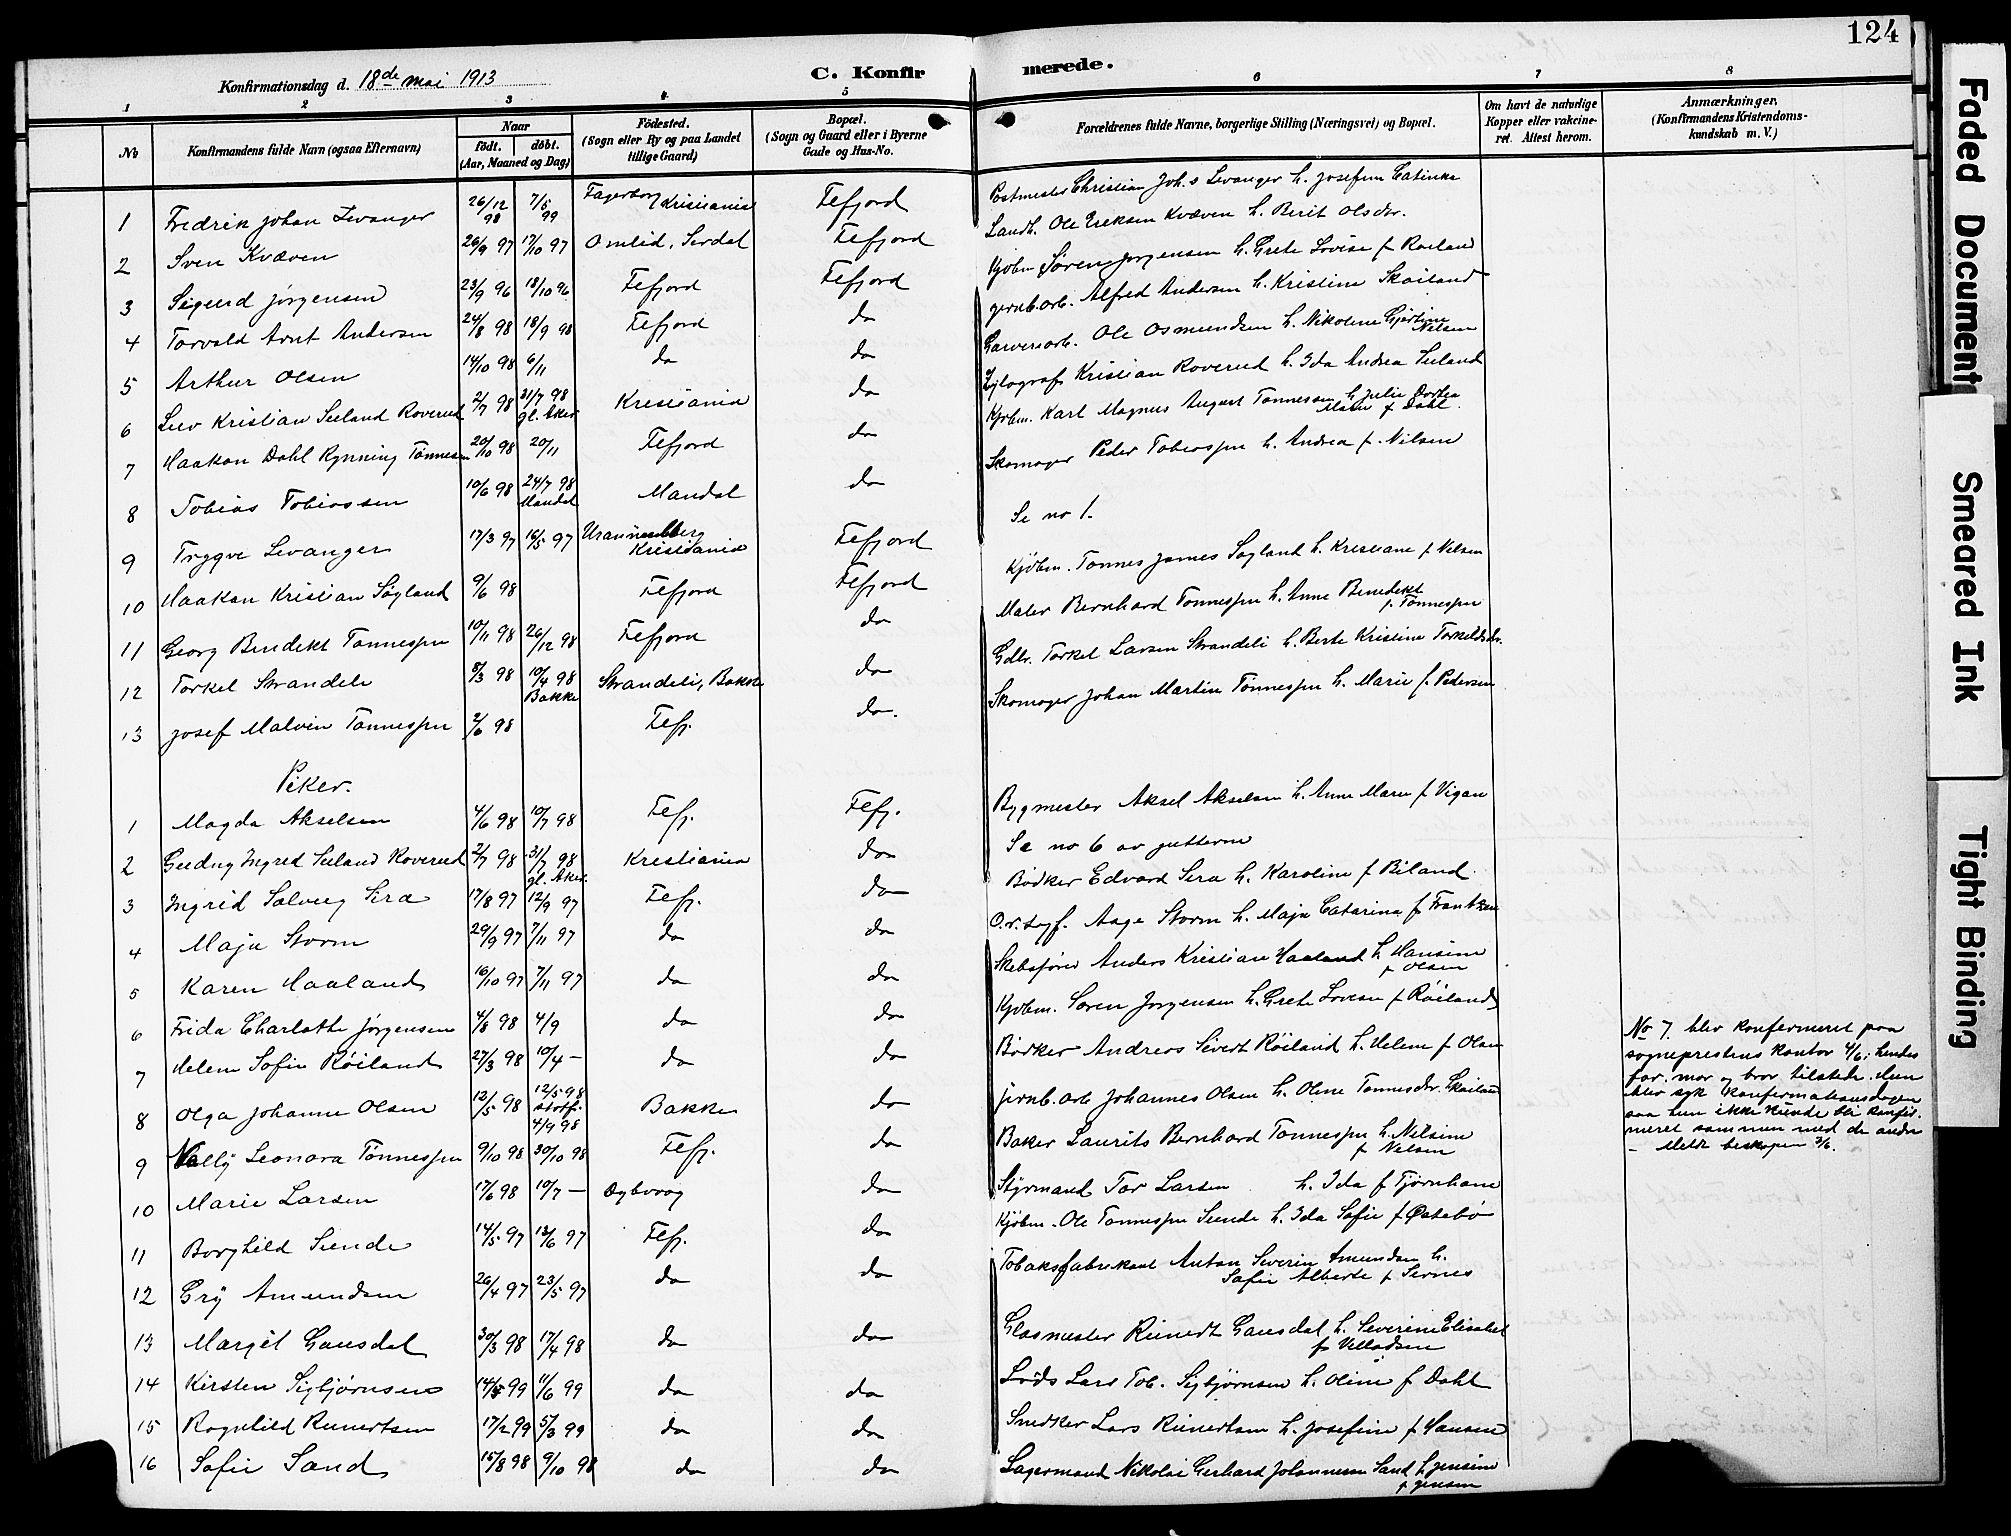 124
Konfirmationsdag d. 18de mai 1913
C. Konfirmerede.
1 2 3 4 5 6 7 8
No
Konfirmandens fulde Navn (ogsaa Efternavn)
Naar
født. døbt.
(Aar, Maaned og Dag)
Fødested.
(Sogn eller By og paa Landet
tillige Gaard)
Bopæl.
(Sogn og Gaard eller i Byerne
Gade og Hus-No.
Forældrenes fulde Navne, borgerlige Stilling (Næringsvei) og Bopæl.
Om havt de naturlige
Kopper eller vakcine-
ret. Attest herom.
Anmærkninger.
(Konfirmandens Kristendoms-
kundskab m. V.)
1 Fredrik Johan Levanger 26/12 98 7/5 99 Fagerborg Kristiania Flefjord Postmester Christian Joh.s Levanger h. Josefine Catinka
2 Sven Kvæven 26/9 97 17/10 97 Omlid, Sirdal Flefjord Landh. Ole Eriksen Kvæven h. Berit Olsdtr.
3 Sigurd Jørgensen 23/9 96 18/10 96 Flefjord Flefjord Kjøbm Søren Jørgensen h. Grete Lovise f Røiland
4 Torvald Arnt Andersen 24/8 98 18/9 98 Flefjord do jernb.arb. Alfred Andersen h. Kristine Skailand
5 Arthur Olsen 14/10 98 6/11 do do Garveriarb. Ole Osmundsen h. Nikoline Gjertine Nilsen
6 Leiv Kristian Seland Roverud 2/7 98 31/7 98 gl. Aker Kristiania do Xylograf Kristian Roverud h. Ida Andrea Seland
7 Haakon Dahl Rynning Tønnesen 20/10 98 20/11 Flefjord do Kjøbm. Karl Magnus August Tønnesen h Julie Dorthea Marie f Dahl.
8 Tobias Tobiassen 10/6 98 24/7 98 Mandal Mandal do Skomager Peder Tobiassen h. Andrea f. Nilsen
9 Trygve Levanger 17/3 97 16/5 97 Uranienborg Kristiania Flefjord Se no 1.
10 Haakon Kristian Søyland 9/6 98 Flefjord Flefjord Kjøbm. Tønnes James Søyland h. Kristiane f Nilsen
11 Georg Bendikt Tønnessen 10/11 98 26/12 98 Flefjord do Maler Bernhard Tønnessen h. Anne Benedikt f. Tønnessen
12 Torkel Strandeli 8/3 98 10/4 98 Bakke Strandeli, Bakke do Gdbr. Torkel Larsen Strandeli h. Berte Kristine Torkeldsdtr.
13 Josef Malvin Tønnessen 2/6 98 Flefj. do. Skomager Johan Martin Tønnessen h. Marie f. Pedersen
Piker.
1 Magda Akselsen 4/6 98 10/7 98 Flefj. Flefj. Bygmester Aksel Akselsen h. Anne Marie f Vigan
2 Gudny Ingrid Seland Roverud 2/7 98 31/7 98 gl. Aker. Kristiania do Se no 6 av guttene
3 Ingrid Solveig Sira 17/8 97 12/9 97 Flefj. do Bødker Edvard Sira h. Karoline f Biland.
4 Maja Storm 29/9 97 7/11 97 do do O.r.sagf. Aage Storm h. Maja Catarina f Frantzen
5 Karen Haaland 16/10 97 7/11 97 do do Skibsfører Anders Kristian Haaland h Hansine f Olsen
6 Frida Charlotte Jørgensen 4/8 98 4/9 do do Kjøbm. Søren Jørgensen h. Grete Lovise f Røiland
7 Helene Sofie Røiland 27/3 98 10/4 – do do Bødker Andreas Sivert Røiland h. Helene f Olsen
8 Olga Johanne Olsen 12/5 98 12/5 98 stadf. 4/9 98 Bakke do jernb. arb Johannes Olsen h. Oline Tønnesdtr. Skailand
9 Nelly Leonora Tønnessen 9/10 98 30/10 98 Flefj. do Baker Laurits Bernhard Tønnessen h. Nilsine f Nilsen
10 Marie Larsen 17/6 98 10/7 – Dybvaag do Styrmand Tor Larsen h. Ida f Tjørnhane
11 Borghild Sunde 14/5 97 13/6 97 Flefj. do Kjøbm. Ole Tønnessen Sunde h. Ida Sofie f Østebø
12 Gry Amundsen 26/4 97 23/5 97 do do Tobaksfabrikant Anton Severin Amundsen h. Sofie Alberte f Sirnes
13 Margit Gausdal 30/3 98 17/4 98 do do Glasmester Reinert Gausdal h. Severine Elisabet f Villadsen
14 Kirsten Sigbjørnsen 14/5 99 11/6 99 do do Lods Lars Tob. Sigbjørnsen h. Oline f Dahl
15 Ragnhild Reinertsen 17/2 99 5/3 99 do do Snedker Lars Reinertsen h. Josefine f Hansen
16 Sofie Sand 15/8 98 9/10 98 do do Lagermand Nikolai Gerhard Johannesen Sand h Jensine f Jensen
No 7. blev konfirmeret paa
sogneprestens kontor 4/6; hendes
far, mor og bror tilstede. Hun
blev syk konfirmationsdagen
saa hun ikke kunde bli konfir-
meret sammen med de andre
– Meldt biskopen 3/6.
Faded Document
Smeared Ink
Tight Binding